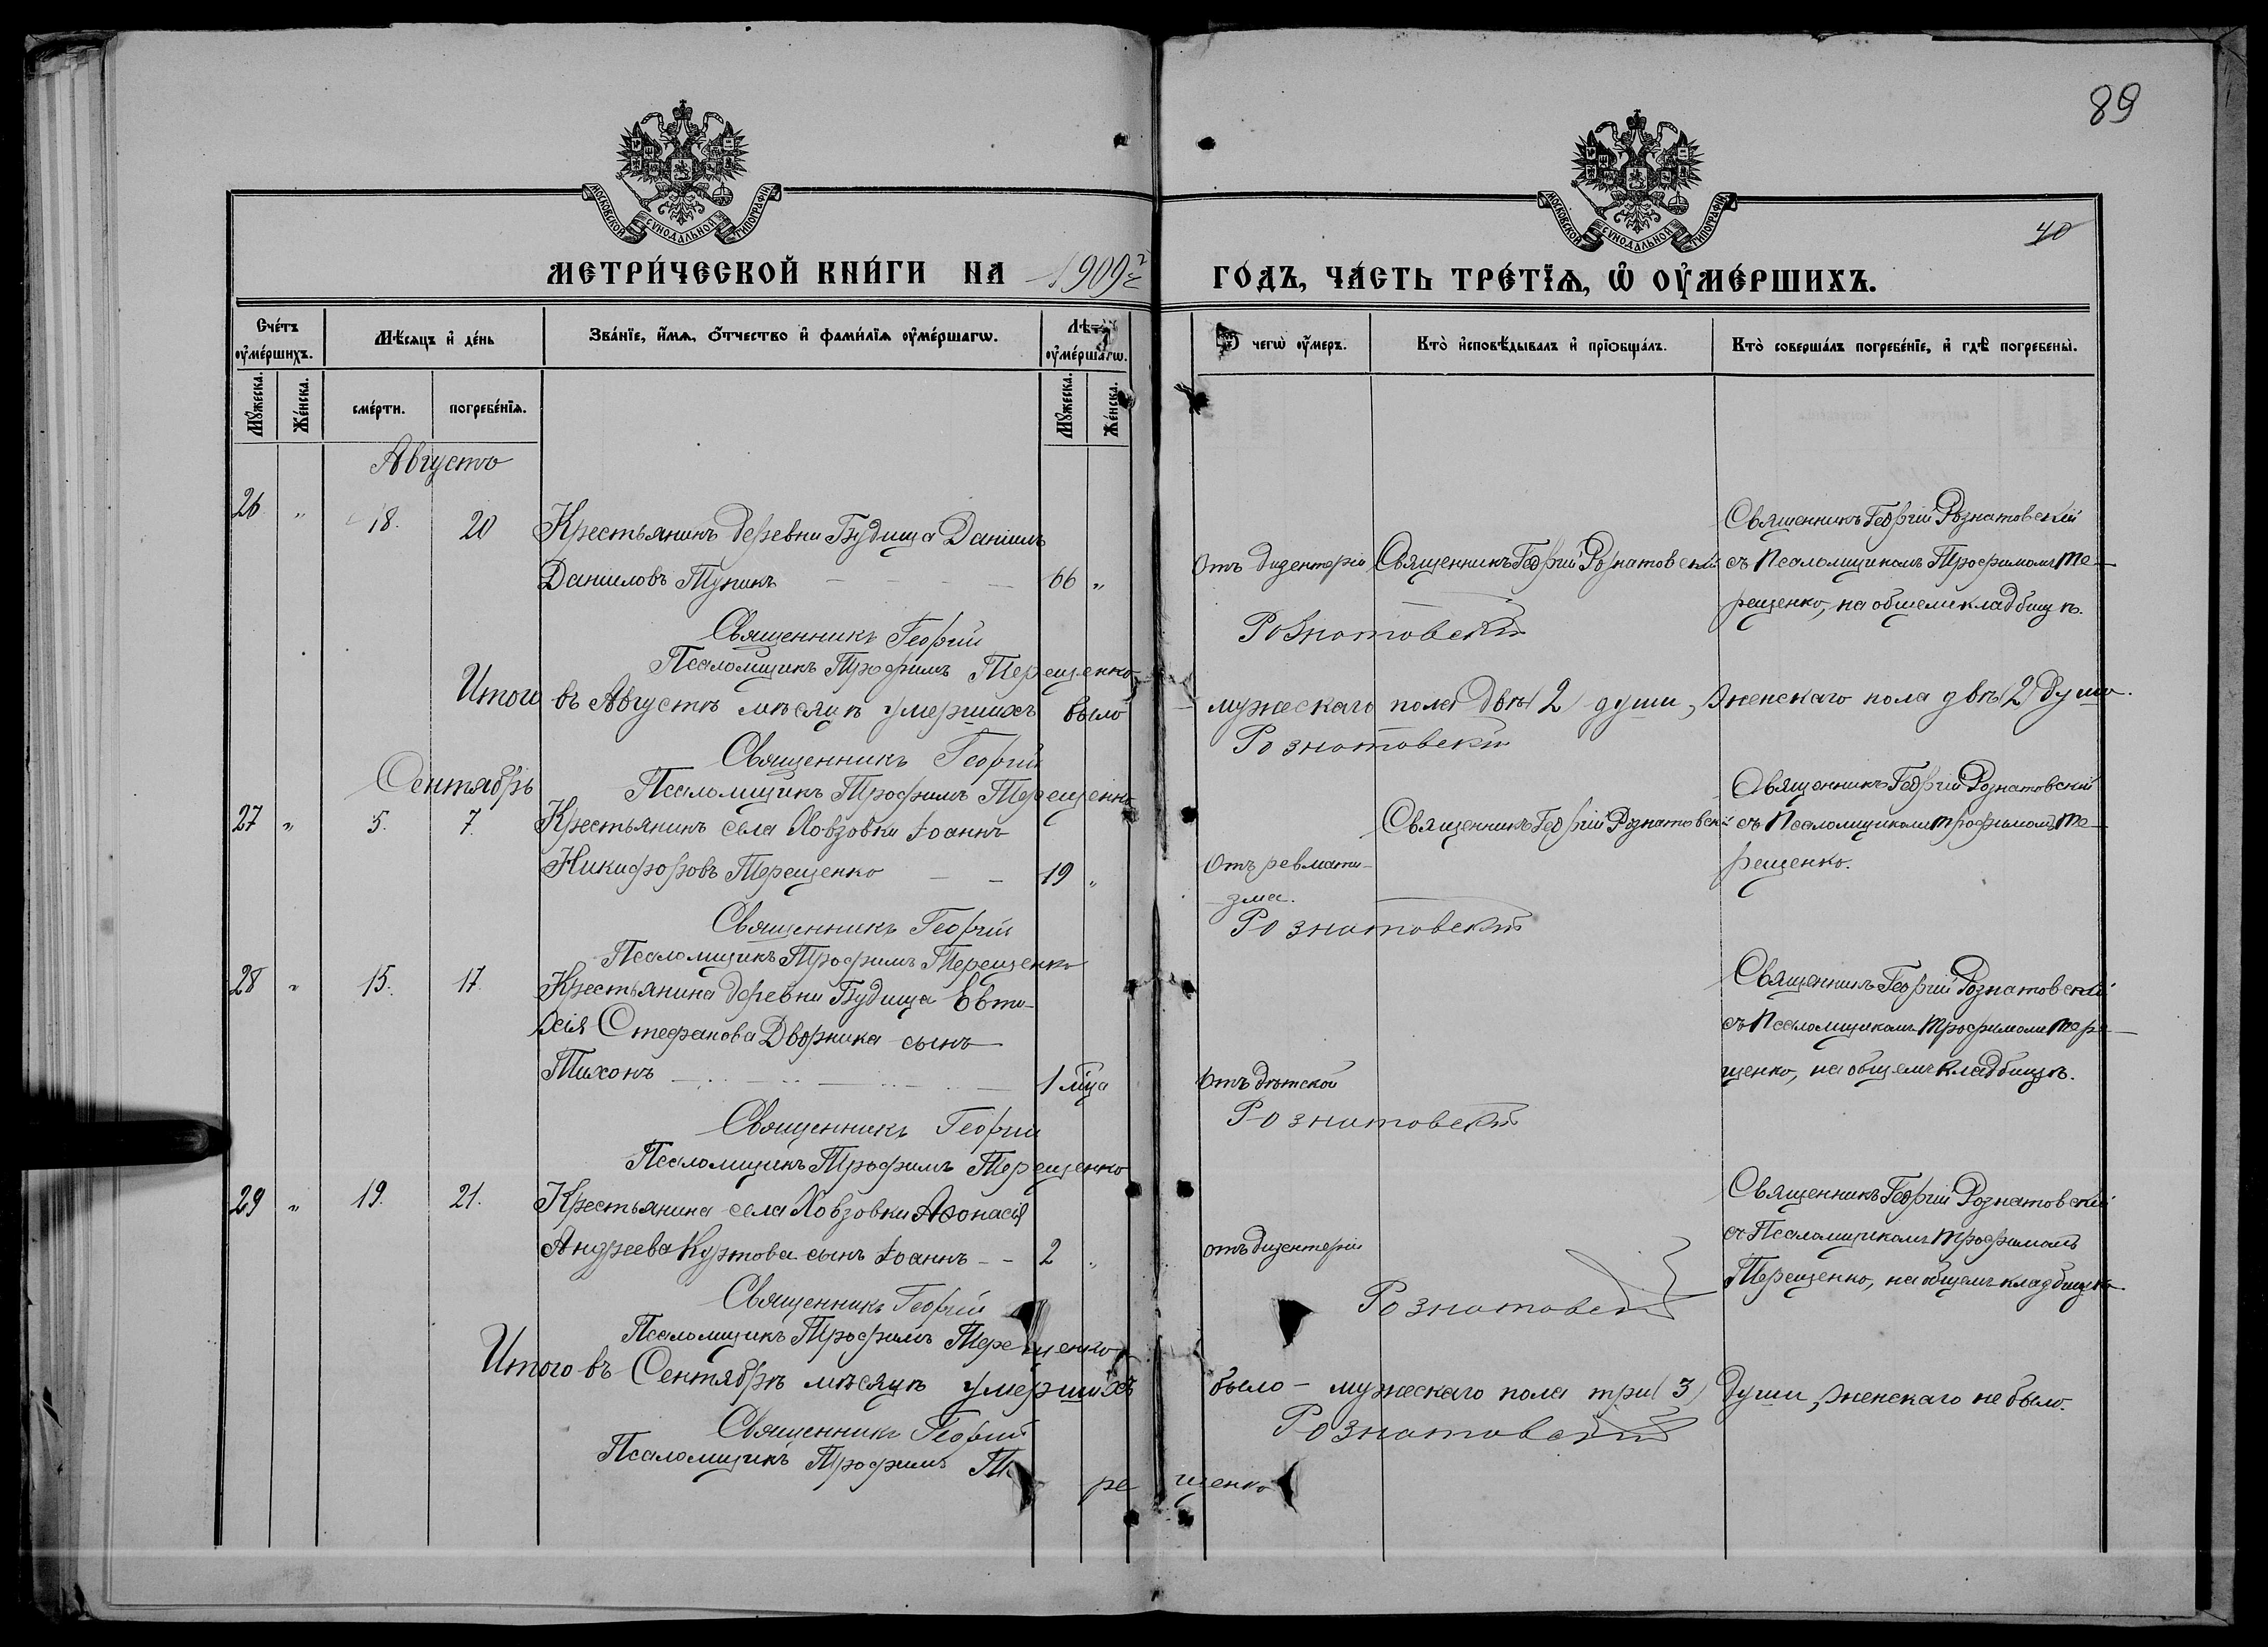 89
40
МОСКОВСКОЙ СѴНОДАЛЬНОЙ ТИПОГРАФІИ
МОСКОВСКОЙ СѴНОДАЛЬНОЙ ТИПОГРАФІИ
МЕТРИ́ЧЕСКОЙ КНИ́ГИ НА 1909 г. ГО́ДЪ, ЧА́СТЬ ТРЕ́ТІѦ, Ѡ҆ ОУ҆МЕ́РШИХЪ.
Сче́тъ оу҆ме́ршихъ.
Мѣ́сяцъ и҆ де́нь
Зва́нїе, и҆́мѧ, ѻ҆́тчество и҆ фами́лїѧ оу҆ме́ршагѡ.
Лѣта оу҆ме́ршагѡ.
Ѿ чегѡ̀ оу҆́меръ.
Кто̀ и҆сповѣ́дывалъ и҆ прїѻбща́лъ.
Кто̀ соверша́лъ погребе́нїе, и҆ гдѣ̀ погребены̀.
Мꙋ́жеска.
Же́нска.
сме́рти.
погребе́нїѧ.
Мꙋ́жеска.
Же́нска.
Августъ
26 " 18. 20 Крестьянинъ деревни Будища Даніилъ
Даниловъ Тупикъ — 66 "
Отъ дизентеріи
Священникъ Георгій Рознатовскій
Священникъ Георгій Рознатовскій
съ Псаломщикомъ Трофимомъ Те-
рещенко, на общемъ кладбищѣ.
Священникъ Георгій Рознатовскій
Псаломщикъ Трофимъ Терещенко
Итого въ Августѣ мѣсяцѣ умершихъ было мужескаго пола двѣ (2) души, женскаго пола двѣ (2) души.
Священникъ Георгій Рознатовскій
Псаломщикъ Трофимъ Терещенко
Сентябрь
27 " 5. 7. Крестьянинъ села Ховзовки Іоаннъ
Никифоровъ Терещенко — — 19 "
Отъ ревмати-
зма.
Священникъ Георгій Рознатовскій
Священникъ Георгій Рознатовскій
съ Псаломщикомъ Трофимомъ Те-
рещенко.
Священникъ Георгій Рознатовскій
Псаломщикъ Трофимъ Терещенко
28 " 15. 17. Крестьянина деревни Будища Евти-
хія Стефанова Дворника сынъ
Тихонъ — 1 мца
Отъ дѣтской
Священникъ Георгій Рознатовскій
съ Псаломщикомъ Трофимомъ Тере-
щенко, на общемъ кладбищѣ.
Священникъ Георгій Рознатовскій
Псаломщикъ Трофимъ Терещенко
29 " 19. 21. Крестьянина села Ховзовки Аѳонасія
Андреева Куртова сынъ Іоаннъ - - 2 "
отъ дизентеріи
Священникъ Георгій Рознатовскій
съ Псаломщикомъ Трофимомъ
Терещенко, на общемъ кладбищѣ
Священникъ Георгій Рознатовскій
Псаломщикъ Трофимъ Терещенко
Итого въ Сентябрѣ мѣсяцѣ умершихъ было - мужескаго пола три (3) души, женскаго не было.
Священникъ Георгій Рознатовскій
Псаломщикъ Трофимъ Терещенко